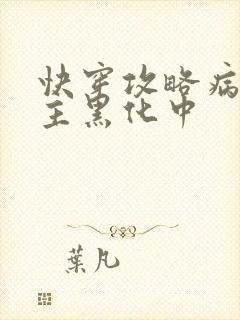 快穿攻略病
主黑化中
葉凡